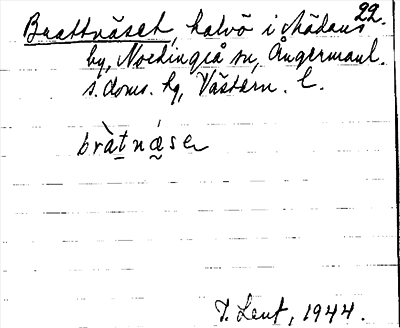 22.
Brattnäset, halvö i Mädans
by, Nordingrå sn, Ångermanl.
s. doms. hg, Västern. l.
bràt̲næ̀se
J. Lent, 1944.